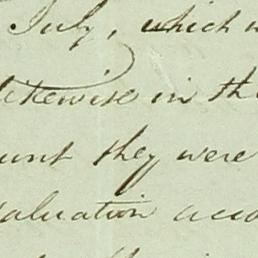 July, which
likewise in the
unt they were
valuation acco